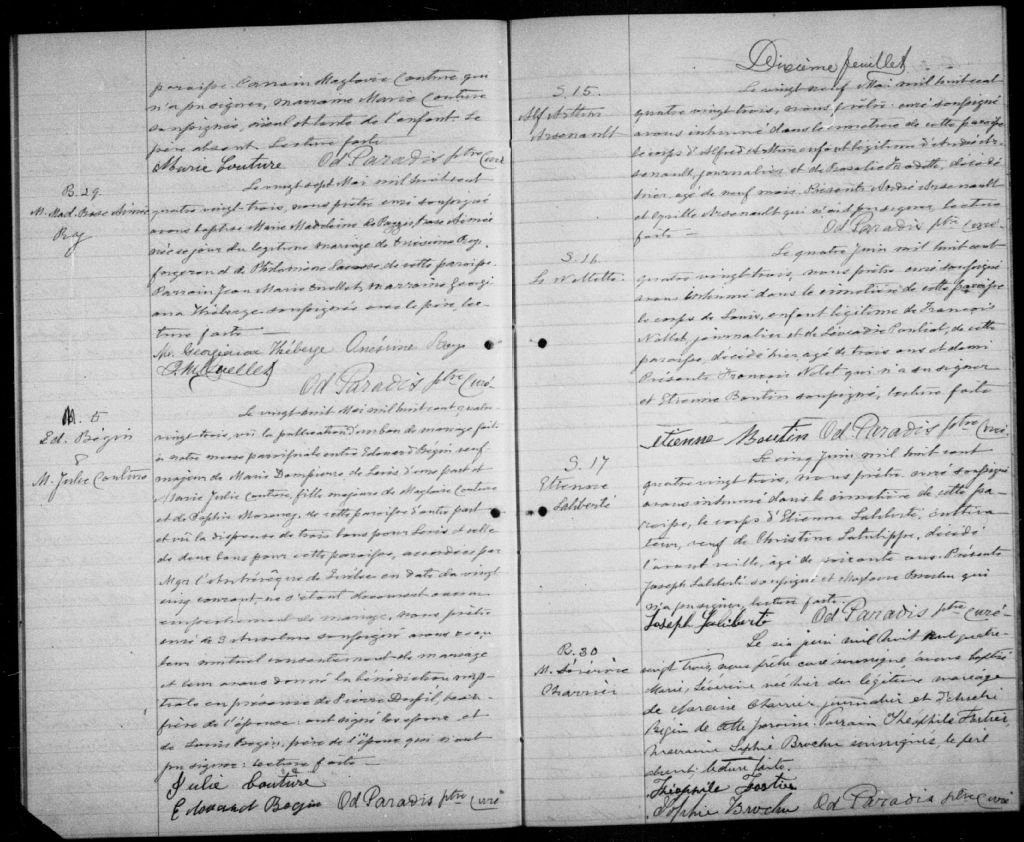 paroisse. Parrain Magloire Couture qui
n'a pu signer, marraine Marie Couture
soussignée, aieul et tante de l'enfant. Le
père absent. Lecture faite
Marie Couture Od Paradis ptre Curé
B. 29
M. Mad. Rose Aimée
Roy
Le vingt sept Mai mil huit cent
quatre vingt-trois, nous prêtre curé soussigné
avons baptisé Marie Madeleine de Pazzis Rose Aimée
née ce jour du légitime mariage de Onésime Roy,
forgeron et de Philomène de cette paroisse.
Parrain Jean Marie Ouellet, marraine Georgi
ana Théberge soussignés avec le père, lec
ture faite
M. Georgiana Théberge Onésime Roy
J. M. Ouellet
Od Paradis ptre Curé.
M. 5
Ed. Bégin
&
M. Julie Couture
Le vingt huit Mai mil huit cent quatre
vingt-trois, vû la publication d'un ban de mariage faite
à notre messe paroissiale entre Edouard Bégin veuf
majeur de Marie Dompierre de Lévis d'une part et
Marie Julie Couture, fille majeure de Magloire Couture
et de Sophie de cette paroisse d'autre part
et vû la dispense de trois bans pour Lévis et celle
de deux bans pour cette paroisse, accordées par
Mgr l'Archevêque de Québec en date du vingt
cinq courant, ne s'étant découvert aucun
empêchement de mariage, nous prêtre
curé de St Anselme soussigné avons reçu
leur mutuel consentement de mariage
et leur avons donné la bénédiction nup
tiale en présence de Pierre beau
frère de l'épouse: ont signé les époux et
de Louis Bégin, père de l'époux qui n'ont
pu signer: lecture faite
Julie Couture
Edouard Begin Od Paradis ptre Curé
Dixième feuillet
S. 15.
Alf. Arthur
Arsenault
Le vingt neuf Mai mil huit cent
quatre vingt trois, nous prêtre curé soussigné
avons inhumé dans le cimetière de cette paroisse
le corps d'Alfred Arthur enfant légitime d'André Ar-
senault, journalier et de Rosalie décédé
hier, agé de neuf mois. Présents André Arsenault
et Cyrille Arsenault qui n'ont pu signer, lecture
faite — Od Paradis ptre Curé.
S. 16
Ls Nollette
Le quatre Juin mil huit cent
quatre vingt trois, nous prêtre curé soussigné
avons inhumé dans le cimetière de cette paroisse
le corps de Louis, enfant légitime de François
Nollet, journalier et de Léocadie de cette
paroisse, décédé hier agé de trois ans et demi
Présents François Nolet qui n'a su signer
et Etienne Boutin soussigné, lecture faite
Etienne Boutin Od. Paradis ptre Curé.
S. 17
Etienne
Laliberté
Le cinq Juin mil huit cent
quatre vingt trois, nous prêtre curé soussigné
avons inhumé dans le cimetière de cette pa-
roisse, le corps d'Etienne Laliberté, cultiva
teur, veuf de Christine décédé
l'avant veille, agé de soixante ans. Présents
Joseph Laliberté soussigné et Magloire Brochu qui
n'a pu signer, lecture faite.
Joseph Laliberté Od Paradis ptre Curé.
B. 30
M. Sévérine
Charrier
Le six juin mil huit cent quatre-
vingt trois, nous prêtre curé soussigné, avons baptisé
Marie, Sévérine née hier du légitime mariage
de Narcisse Charrier, journalier et
Bégin de cette paroisse. Parrain Théophile Fortier,
marraine Sophie Brochu soussignés, le père
absent: lecture faite.
Théophile Fortier
Sophie Brochu Od Paradis ptre Curé